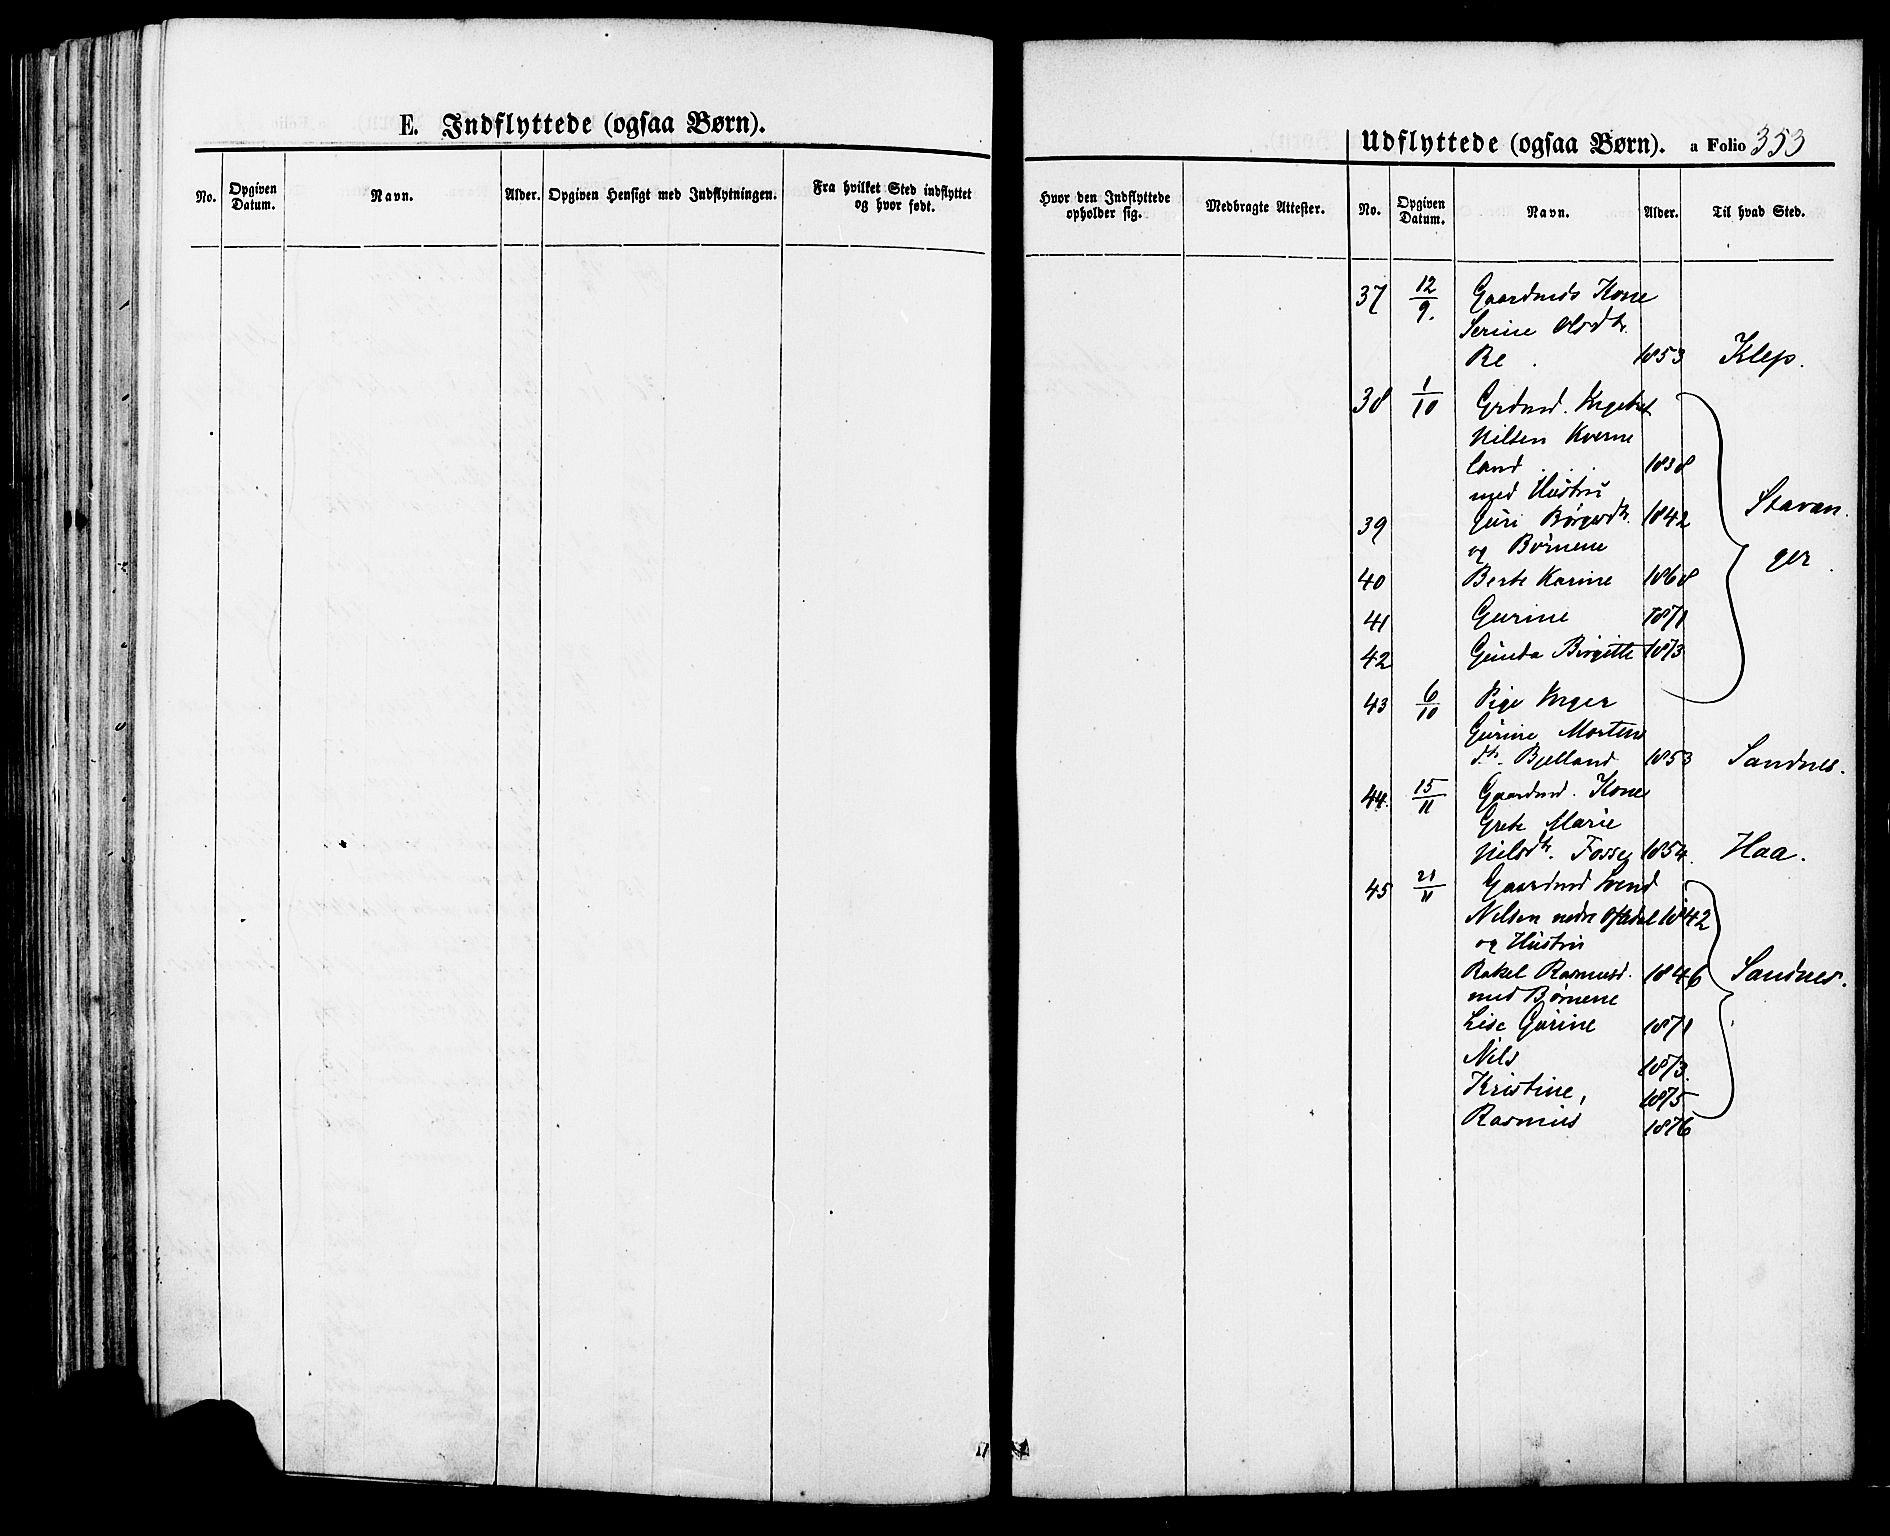 E. Indflyttede (ogsaa Børn).
No. Opgiven Datum. Navn. Alder. Opgiven Hensigt med Indflytningen. Fra hvilket Sted indflyttet og hvor født.
Udflyttede (ogsaa Børn). a Folio 353
Hvor den Indflyttede opholder sig. Medbragte Attester. No. Opgiven Datum. Navn. Alder. Til hvad Sted.
37 12/9. Gaardmds Kone
Serine Olsdtr.
Re 1853 Klep.
38 1/10 Grdmd. Ingebret
Nilsen Kverne
land 1838
med Hustru
39 Guri Børgesdtr. 1842 Stavan
og Børnene ger
40 Berte Karine 1868
41 Gurine 1871
42 Gunda Birgitte 1873
43 6/10 Pige Inger
Gurine Mortens
dtr. Bjelland 1853 Sandnes.
44. 15/11 Gaardmd. Kone
Grete Marie
Nilsdtr. Fosse 1854. Haa.
45 21/11 Gaardmd Svend
Nilsen nedre 1842
og Hustru
Rakel Rasmusd. 1846 Sandnes.
med Børnene
Lise Gurine 1871
Nils 1873.
Kristine, 1875
Rasmus 1876